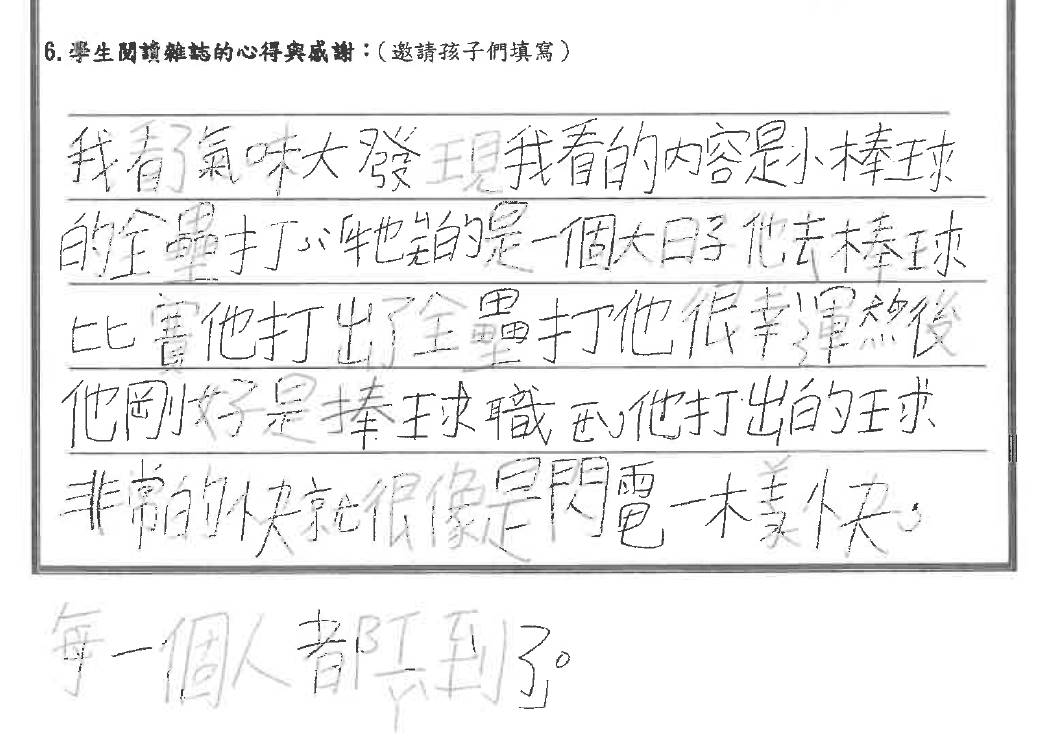 6.學生閱讀雜誌的心得與感謝：(邀請孩子們填寫)
我看了氣味大發現我看的内容是小棒球
的全壘打小牠的是一個大日子他去棒球
比賽他打出了全壘打他很幸運然後
他剛好是捧球職西他打出的球
非常的快就很像是閃電一樣快。
每一個人都到了。